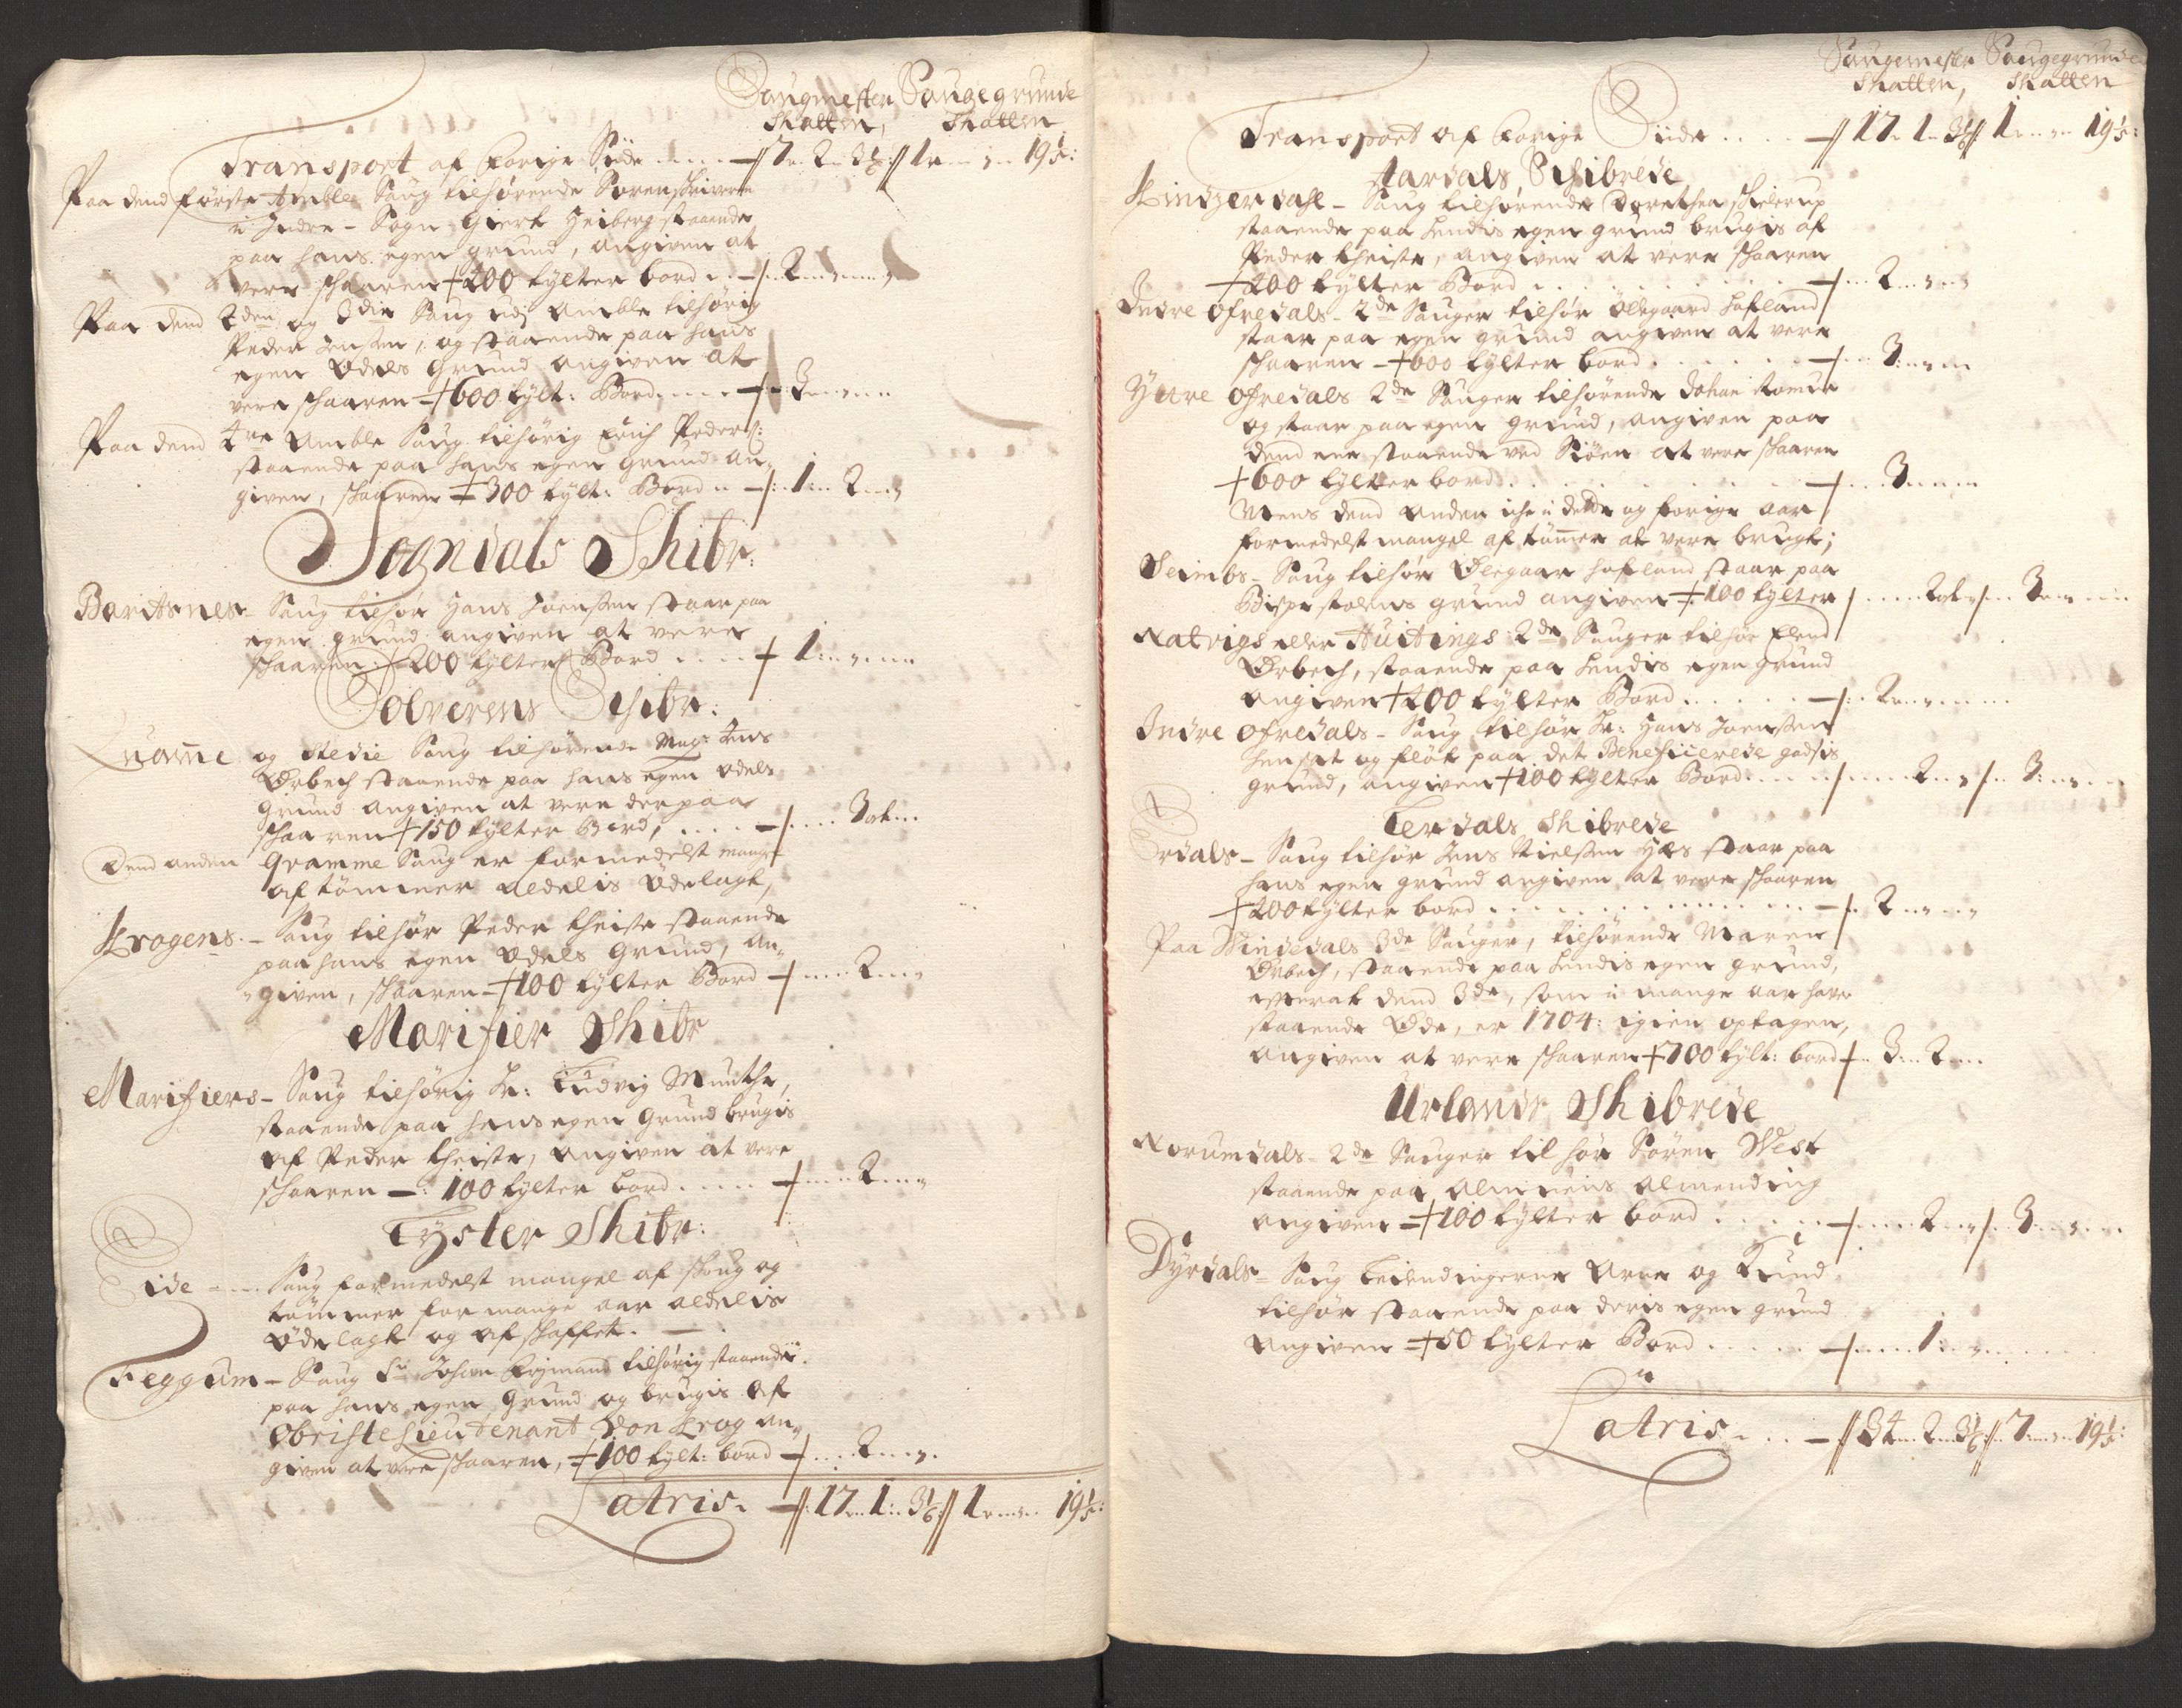 Saugmester Saugegrunde
Skatten, Skatten
Transport af forige Side ..... 7.. 2.. 3 1/6 1.. „.. 19 1/5:
Paa dend første Amble Saug tilhørende Sorenskrivere
i Indre-Sogn Giert Heiberg staaende
paa hans egen grund, angiven at
vere skaaren 400 tylter bord .. 2..
Paa dend 2den og 3die Saug udj Amble tilhørig
Peder Jenßen, og staaende paa hans
egen Odels Grund angiven at
vere skaaren 600 tylt: Bord .... 3..
Paa dend 4re Amble Saug tilhørig Erich Peders:
staaende paa hans egen grund an„
given, skaaren 300 tylt: Bord .. 1.. 2..
Sogndals Skibr:
Baritsnes Saug tilhør Hans Joenßen staar paa
egen grund angiven at vere
skaaren 200 tylter Bord .... 1..
Solverens Schibr:
Quamme og Stedie Saug tilhørende Mag: Jens
Ørbech staaende paa hans egen odels
Grund angiven at vere derpaa
skaaren 150 tylter Bord, .... 3 ort..
Dend anden Qvamme Saug er formedelst mangel
af tömmer aldelis Ödelagt,
Krogens - Saug tilhør Peder Theiste staaende
paa hans egen Odels Grund, an„
„given, skaaren 100 tylter Bord .. 2..
Marifier Skibr
Marifiers - Saug tilhørig Hr: Ludvig Munthe,
staaende paa hans egen Grund brugis
af Peder Theiste, angiven at vere
skaaren 100 tylter bord .... 2..
Lyster Skibr:
Eide .... Saug formedelst mangel af skoug og
tømmer for mange aar aldelis
Ödelagt og afskaffet.
Feggum - Saug Sr Johan tilhørig staaende
paa hans egen Grund og brugis af
Obriste Lieutenant Von Krog an„
given at vere skaaren, 100 tylt: bord .. 2..
Latris. 17.. 1.. 3 1/6 1.. „.. 19 1/5:
Saugemester Saugegrunde
Skatten, Skatten
Transport af forige Siide .... 17.. 1.. 3 1/6 1.. „.. 19 1/5:
Aardals Schibrede
Kindzerdahl - Saug tilhørende Dorethea Schielerup
staaende paa hendis egen grund brugis af
Peder Theiste, angiven at vere skaaren
400 tylter Bord .......... 2..
Indre Ofredals - 2de Sauger tilhør Oldegaard Hofland
staar paa egen grund angiven at vere
skaaren 600 tylter bord ...... 3..
Yttre Ofredals 2de Sauger tilhørende Johan
og staar paa egen grund, angiven paa
dend ene staaende ved Siöen at vere skaaren
600 tylter bord .......... 3..
Mens dend anden iche i dette og forige aar
formedelst mangel af tömmer at vere brugt;
Seimbs - Saug tilhør Olegaar Hofland staar paa
Bispe stolens grund angiven 100 tylter .. 2 ort.. 3..
Natvigs eller Huitings 2de Sauger tilhør
Ørbech, staaende paa hendis egen grund
angiven 400 tylter Bord ..... 2..
Indre Ofredals - Saug tilhør Hr: Hans Joenßen
hensat og fløt paa det Beneficerede godsis
grund, angiven 100 tylter Bord .... 2.. 3..
Lerdals Skibrede
Erdals - Saug tilhør Jens Nielßen Hæs staar paa
hans egen grund angiven at vere skaaren
400 tylter bord .......... 2..
Paa Windedals 3de Sauger, tilhørende Maren
Ørbech, staaende paa hendis egen grund,
hvoraf dend 3de, som i mange aar haver
staaende Øde, er 1704: igien optagen,
angiven at vere skaaren 700 tylt: bord .. 3.. 2..
Urlands Skibrede
Norumdals 2de Sauger tilhør Sören West
staaende paa almeneds Almending
angiven 100 tylter bord ..... 2.. 3..
Dyrdals - Saug Leilendingerne Arne og Knud
tilhør staaende paa deris egen grund
angiven 50 tylter Bord ..... 1..
Latris. .. 34.. 2.. 3 1/6 7.. „.. 19 1/5: